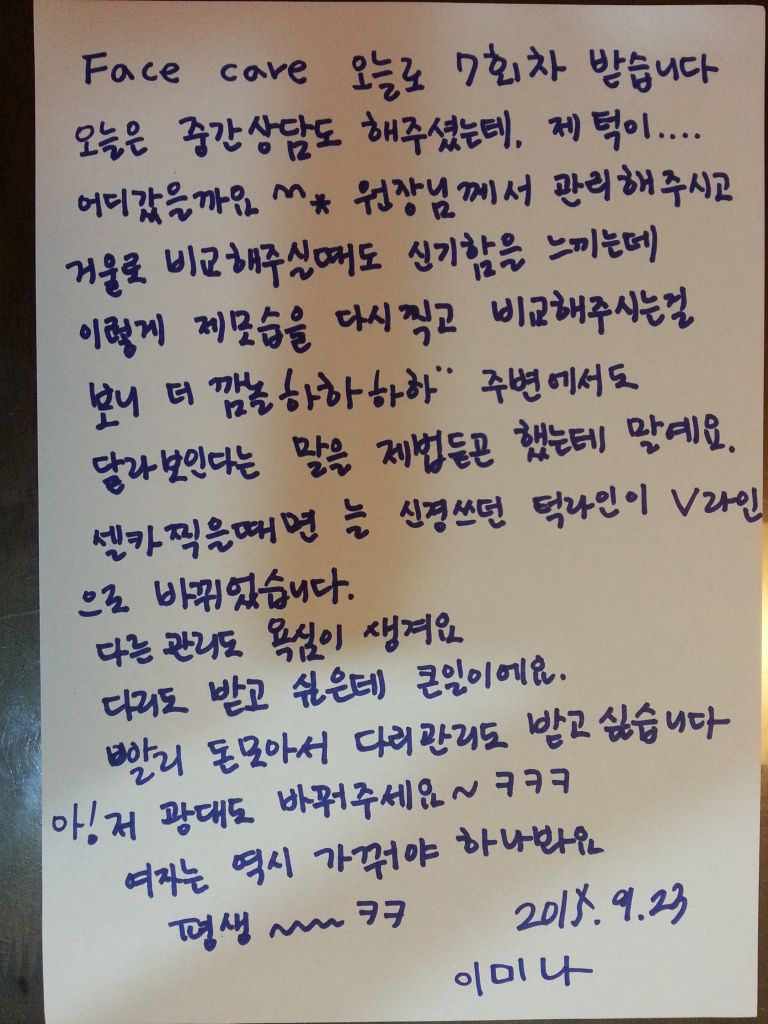 Face care 오늘로 7회차 받습니다
오늘은 중간상담도 해주셨는데, 제 턱이....
어디갔을까요 ^^* 원장님께서 관리해주시고
거울로 비교해주실때도 신기함을 느끼는데
이렇게 제모습을 다시찍고 비교해주시는걸
보니 더 깜놀 하하하하¨ 주변에서도
달라보인다는 말을 제법듣곤 했는데 말예요.
셀카찍을때면 늘 신경쓰던 턱라인이 V라인
으로 바뀌었습니다.
다른관리도 욕심이 생겨요
다리도 받고 싶은데 큰일이에요.
빨리 돈모아서 다리관리도 받고싶습니다
아! 저 광대도 바꿔주세요~ ㅋㅋㅋ
여자는 역시 가꿔야 하나봐요
평생~~~ ㅋㅋ
9.23
이미나